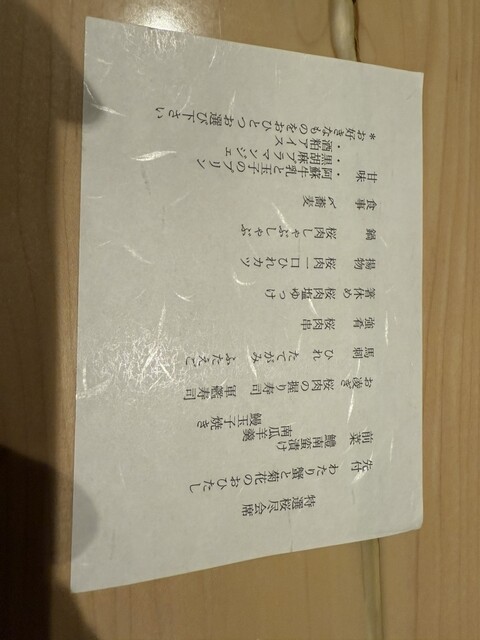 特選桜尽会席
先付
わたり蟹と菊花のおひたし
前菜
鱧南蛮漬け
南瓜羊羹
鰻玉子焼き
お凌ぎ
桜肉の握り寿司 軍艦寿司
馬刺
ひれ たてがみ ふたえご
強肴
桜肉串
箸休め
桜肉塩ゆっけ
揚物
桜肉一口ひれカツ
鍋
桜肉しゃぶしゃぶ
食事
〆蕎麦
甘味
・阿蘇牛乳と玉子のプリン
・黒胡麻ブランマンジェ
・酒粕アイス
*お好きなものをひとつお選び下さい